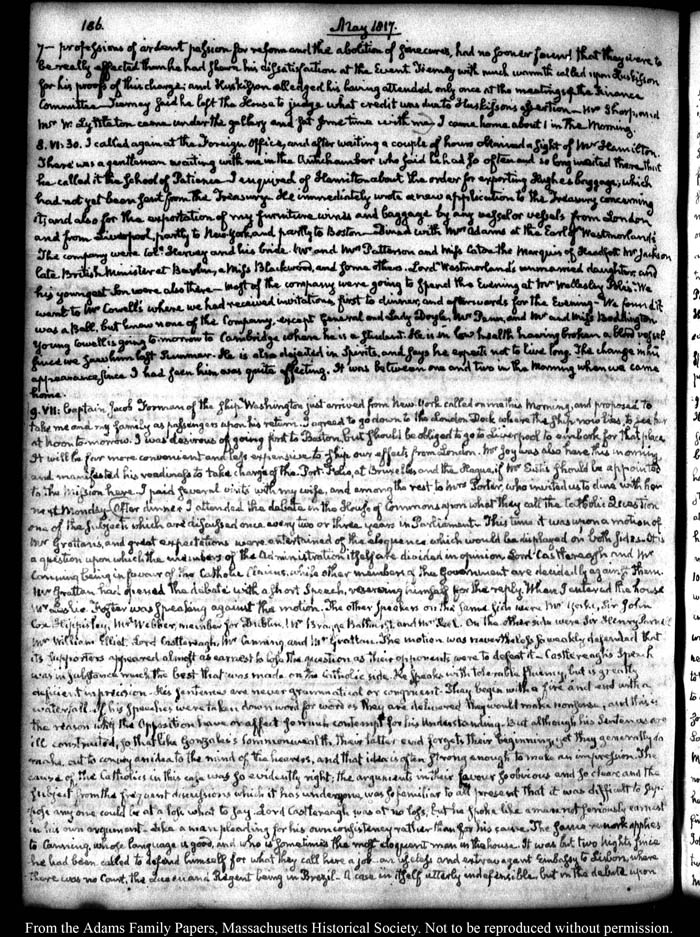 186.
May 1817.
7— professions of ardent passion for reform and the abolition of sinecures, had no sooner found that they were to
be really effected than he had shown his dissatisfaction at the Event. Tierney with much warmth called upon Huskisson
for his proofs of this charge; and Huskisson alledged his having attended only once at the meetings of the Finance
Committee— Tierney said he left the House to judge what credit was due to Huskisson's assertion— Mr Thorp, and
Mr W. Lyttleton came under the gallery and sat some time with me— I came home about 1 in the Morning.
8. VI:30. I called again at the Foreign Office, and after waiting a couple of hours obtained a sight of Mr Hamilton.
There was a gentleman waiting with me in the Antichamber who said he had so often and so long waited there that
he called it the School of Patience. I enquired of Hamilton about the order for exporting Hughes's baggage; which
had not yet been sent from the Treasury. He immediately wrote a new application to the Treasury concerning
it; and also for the exportation of my furniture wines and baggage by any vessel or vessels from London
and from Liverpool, partly to New York, and partly to Boston— Dined with Mrs Adams at the Earl of Westmorland's
The company were Coll. Hervey and his bride. Mr and Mrs Patterson and Miss Caton the Marquis of Headfort Mr Jackson
late British Minister at Berlin, a Miss Blackwood, and some others. Lord Westmorland's unmarried daughter, and
his youngest Son were also there— most of the company were going to spend the Evening at Mr Wellesley Pole's— We
went to Mr Cowell's where we had received invitations, first to dinner, and afterwards for the Evening— We found it
was a Ball, but knew none of the Company, except General and Lady Doyle, Mr Penn, and Mr and Miss Boddington
Young Cowell is going to-morrow to Cambridge where he is a Student. He is in low health having broken a blood vessel
since we saw him last Summer. He is also dejected in Spirits, and says he expects not to live long. The change in his
appearance since I had seen him was quite affecting. It was between one and two in the Morning when we came
home.
9. VII: Captain Jacob Forman of the Ship Washington just arrived from New-York called on me this Morning, and proposed to
take me and my family as passengers upon his return. I agreed to go down to the London Dock where the Ship now lies to see her
at Noon to-morrow. I was desirous of going first to Boston, but should be obliged to go to Liverpool to embark for that place
It will be far more convenient and less expensive to ship our effects from London. Mr Joy was also here this morning
and manifested his readiness to take charge of the Port-Folio, at Bruxelles and the Hague, if Mr Eustis should be appointed
to the Mission here. I paid several visits with my wife, and among the rest to Mrs Porter, who invited us to dine with her
next Monday. After dinner I attended the debate in the House of Commons upon what they call the Catholic Question
one of the subjects which are discussed once every two or three years in Parliament. This time it was upon a motion of
Mr Grattan's, and great expectations were entertained of the eloquence which would be displayed on both sides. It is
a question upon which the members of the Administration itself are divided in opinion, Lord Castlereagh and Mr
Canning being in favour of the Catholic Claims, while other members of the Government are decidedly against them.
Mr Grattan had opened the debate with a short Speech, reserving himself for the reply. When I entered the house
Mr Leslie Foster was speaking against the motion. The other speakers on the same side were Mr Yorke, Sir John
Cox Hippisley, Mr Webber, member for Dublin, Mr Bragge Bathurst, and Mr Peel. On the other side were Sir Henry Parnell
Mr William Elliot, Lord Castlereagh, Mr Canning and Mr Grattan. The motion was nevertheless so weakly defended that
its supporters appeared almost as earnest to lose the question as their opponents were to defeat it— Castlereagh's Speech
was in substance much the best that was made on the Catholic side. He speaks with tolerable fluency, but is greatly
deficient in precision— His Sentences are never grammatical or congruent— They begin with a fire and end with a
waterfall. If his Speeches were taken down word for word as they are delivered they would make nonsense, and this is
the reason why the Opposition have or affect so much contempt for his Understanding. But although his Sentences are
ill constructed, so that like Gonzalez's commonwealth, their latter end forgets their beginning, yet they generally do
make out to convey an idea to the mind of the hearers, and that idea is often strong enough to make an impression. The
cause of the Catholics in this case was so evidently right; the arguments in their favour so obvious and so clear and the
subject from the frequent discussions which it has undergone, was so familiar to all present that it was difficult to sup-
pose any one could be at a loss what to say. Lord Castlereagh was at no loss, but he spoke like a man not seriously earnest
in his own argument— like a man pleading for his own consistency rather than for his cause. The same remark applies
to Canning, whose language is good, and who is sometimes the most eloquent man in the house. It was but two nights since
he had been called to defend himself for what they call here a job— an useless and extravagant Embassy to Lisbon, where
there was no Court, the Queen and Regent being in Brazil— A case in itself utterly indefensible, but in the debate upon
From the Adams Family Papers, Massachusetts Historical Society. Not to be reproduced without permission.